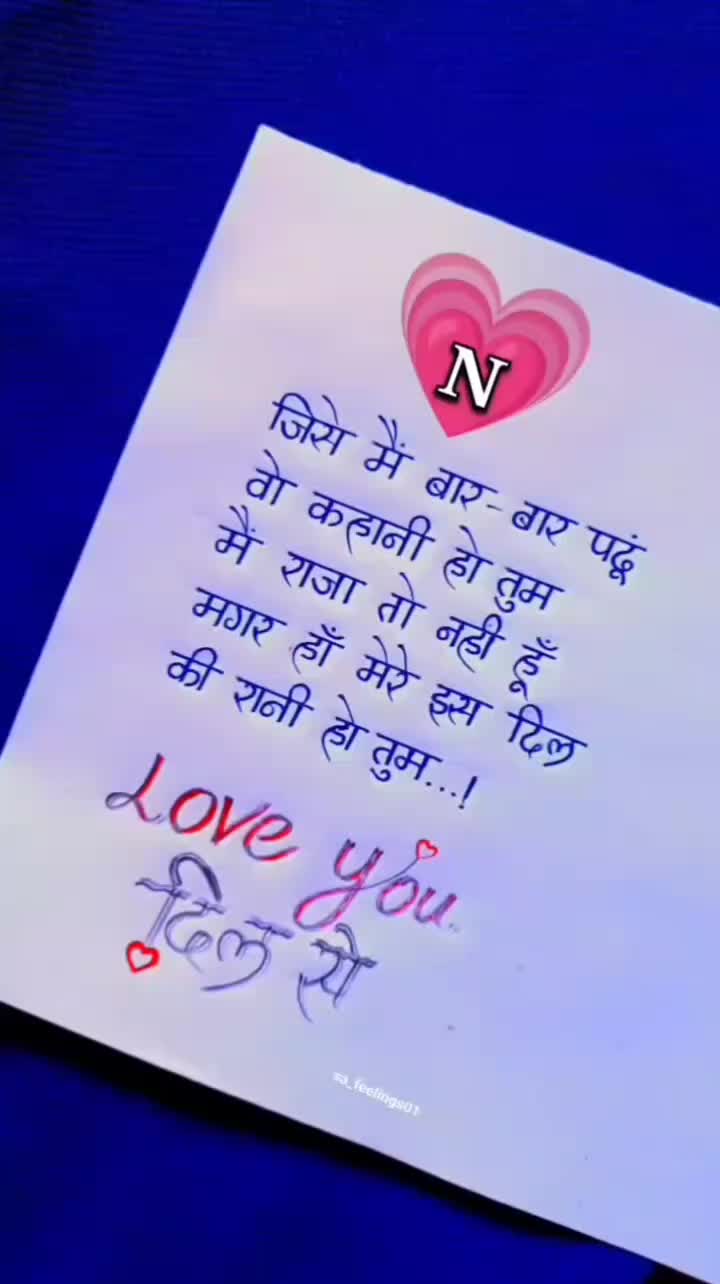 N
जिसे मैं बार-बार पढूं
वो कहानी हो तुम
मैं राजा तो नही हूँ
मगर हाँ मेरे इस दिल
की रानी हो तुम...!
Love you.
दिल से
sa_feelings01